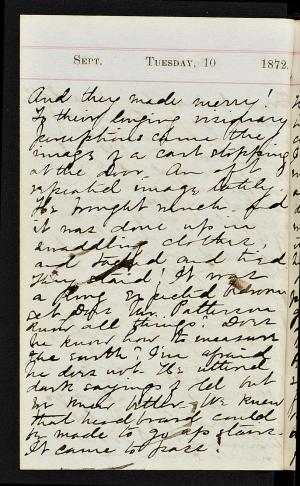 SEPT. TUESDAY, 10 1872.
And they made merry!
To their longing visionary
perceptions came the
image of a cart stopping
at the door. An oft
repeated image lately.
He brought much and
it was done up in
swaddling clothes,
and and tied
It was
a long expected
set. Does Mr. Patterson
know all things? Does
he know how to measure
the earth? I'm afraid
he does not. He uttered
dark sayings of old but
we knew better. We knew
that headboard could
be made to go up stairs.
It came to pass!